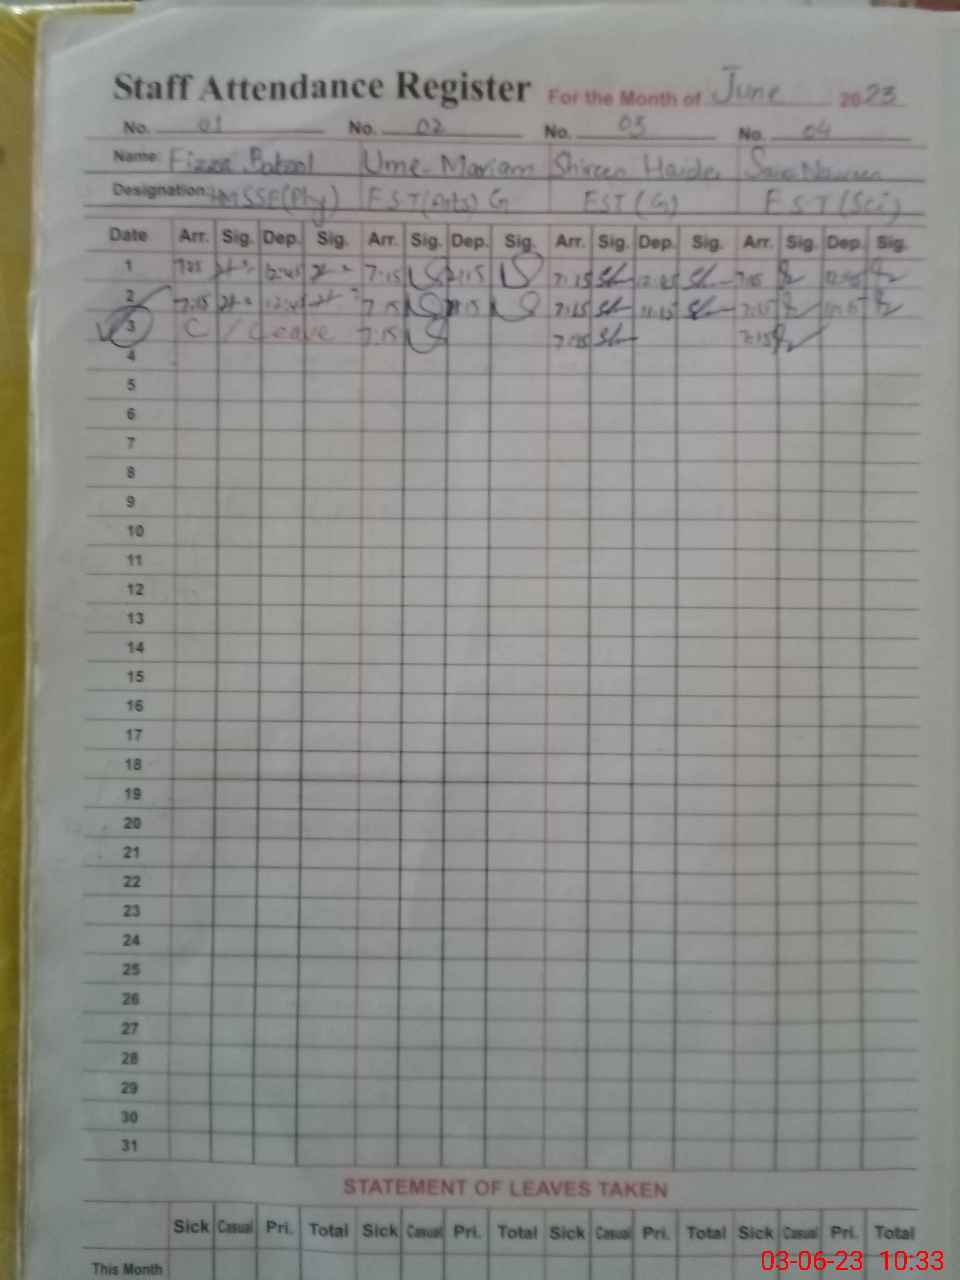 Staff Attendance Register For the Month of June 2023
No. 01 No. 02 No. 03 No. 04
Name: Fizza Batool Ume Mariam Shireen Haider
Designation: EST (Arts) G EST (G) EST (Sci)
Date Arr. Sig. Dep. Sig. Arr. Sig. Dep. Sig. Arr. Sig. Dep. Sig. Arr. Sig. Dep. Sig.
1 12:45 7:15 7:15
2 7:15 12:45 7:15 7:15
3 C/Leave 7:15 7:15 7:15
4
5
6
7
8
9
10
11
12
13
14
15
16
17
18
19
20
21
22
23
24
25
26
27
28
29
30
31
STATEMENT OF LEAVES TAKEN
Sick Casual Pri. Total Sick Casual Pri. Total Sick Casual Pri. Total Sick Casual Pri. Total
This Month
03-06-23 10:33